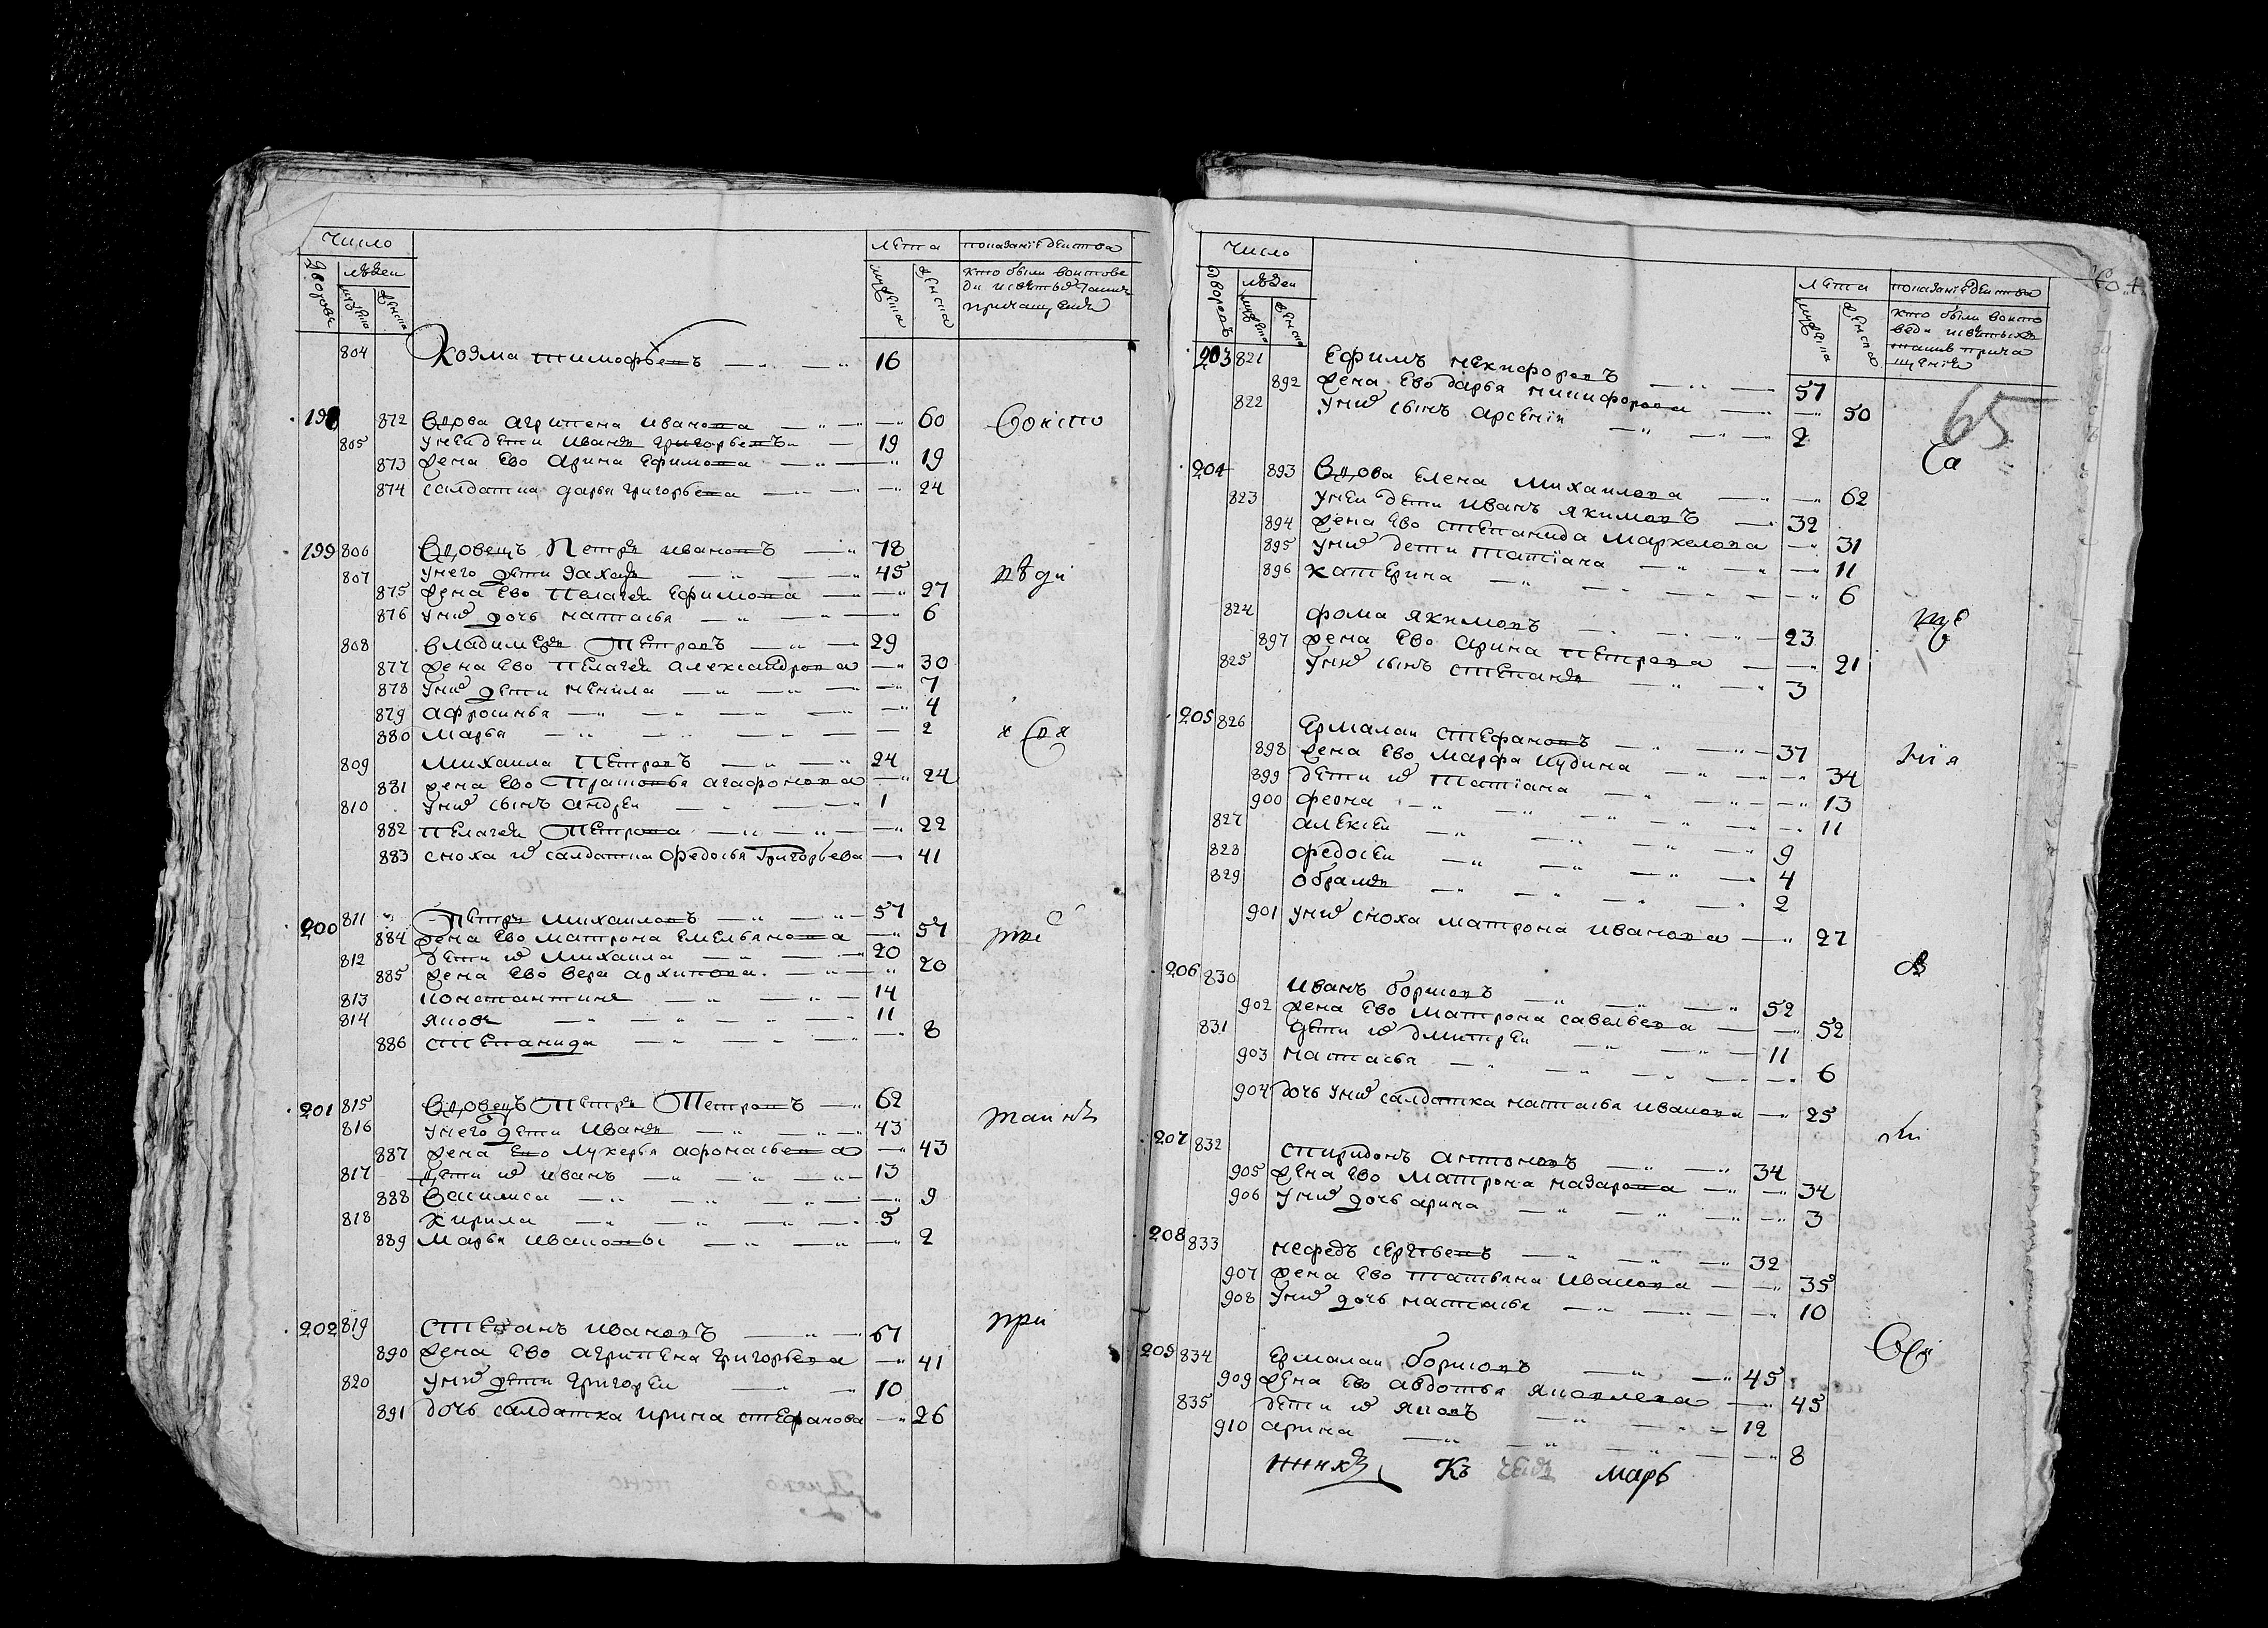 Число
людеи
лета
показанїе действа
804 Козма тимофѣевъ 16
198 872 Вдова агрипена иванова 60 Воисто
805 у неи дети иванъ григорьевъ 19
873 жена ево арина Ефимова 19
874 салдатка дарья григорьева 24
199 806 Вдовецъ Петръ ивановъ 78
807 у него дети захаръ 45
875 жена Ево Пелагея Ефимова 27
876 у них дочь настасья 6
808 владимеръ Петровъ 29
877 жена Ево Пелагея александрова 30
878 у них дети ненила 7
879 афросинья 4
880 Марья 2
809 михаила Петровъ 24
881 жена Ево агафонова 24
810 у них сынъ андреи 1
882 Пелагея Петрова 22
883 сноха их салдатка Федосья Григорьева 41
200 811 Петръ михаиловъ 57
884 жена Ево матрона Емельянова 57
812 дети их михаила 20
885 жена Ево вера архипова 20
813 константинъ 14
814 яковъ 11
886 степанида 8
201 815 Вдовецъ Петръ Петровъ 62
816 у него дети иванъ 43
887 жена Ево лукерья афонасьева 43
817 дети их иванъ 13
888 Василиса 9
818 кирила 5
889 марья ивановы 2
202 819 степанъ ивановъ 67 при
890 жена Ево агрипена григорьева 41
820 у них дети григореи 10
891 дочь салдатка ирина стефанова 26
Число
людеи
лета
показанїе действа
65
203 821 Ефимъ некифоровъ 57
892 жена Ево дарья никифорова 50
822 у них сынъ арсенїи 2
204 893 Вдова Елена михаилова 62
823 у неи дети иванъ якимовъ 32
894 жена Ево степанида маркелова 31
895 у них дети татїана 11
896 катерина 6
824 фома якимовъ 23
897 жена Ево арина петрова 21
825 у них сынъ степанъ 3
205 826 Ермалаи стефановъ 37
898 жена Ево марфа иудина 34
899 дети их татїана 13
900 феона 11
827 алексеи 9
828 федосеи 4
829 обрамъ 2
901 у них сноха матрона иванова 27
206 830 иванъ борисовъ 52
902 жена Ево матрона савельева 52
831 дети их дмитреи 11
903 настасья 6
904 дочь у них салдатка настасья иванова 25
207 832 спиридонъ антоновъ 34
905 жена Ево матрона назарова 34
906 у них дочь арина 3
208 833 нефедъ сергѣевъ 32
907 жена Ево татьяна иванова 35
908 у них дочь настасья 10
209 834 Ермалаи борисовъ 45
909 жена Ево авдотья яковлева 45
835 дети их яковъ 12
910 арина 8